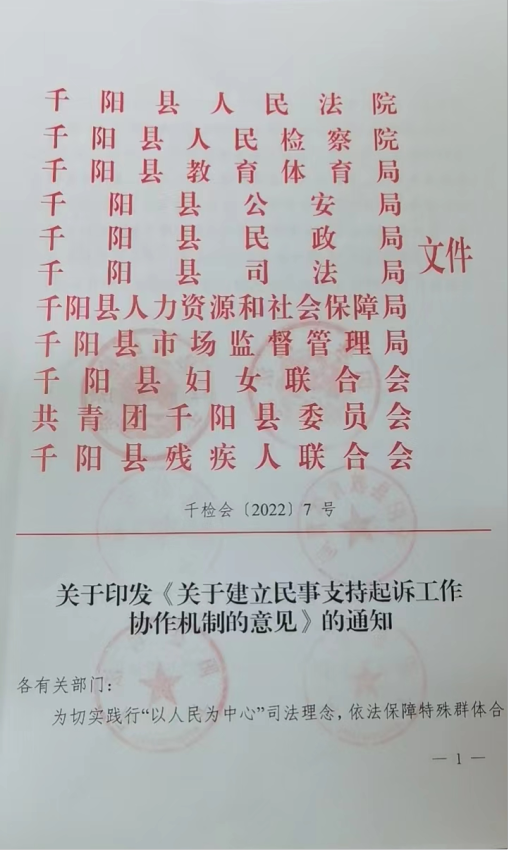 千阳县人民法院
千阳县人民检察院
千阳县教育体育局
千阳县公安局
千阳县民政局
千阳县司法局
千阳县人力资源和社会保障局
千阳县市场监督管理局
千阳县妇女联合会
共青团千阳县委员会
千阳县残疾人联合会
文件
千检会〔2022〕7 号
关于印发《关于建立民事支持起诉工作
协作机制的意见》的通知
各有关部门：
为切实践行“以人民为中心”司法理念，依法保障特殊群体合
— 1 —